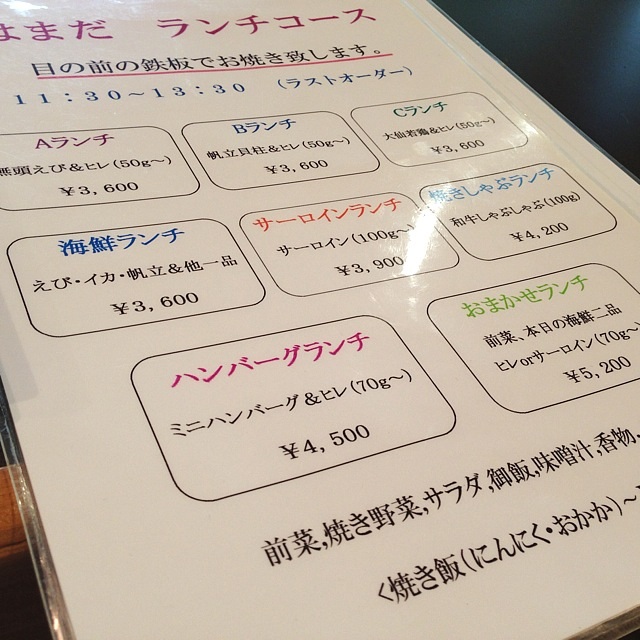 はまだ ランチコース
目の前の鉄板でお焼き致します。
11:30～13:30 (ラストオーダー)
Aランチ
無頭えび&ヒレ(50g～)
¥3,600
Bランチ
帆立貝柱&ヒレ(50g～)
¥3,600
Cランチ
大仙若鶏&ヒレ(50g～)
¥3,600
海鮮ランチ
えび・イカ・帆立&他一品
¥3,600
サーロインランチ
サーロイン(100g～)
¥3,900
焼きしゃぶランチ
和牛しゃぶしゃぶ(100g)
¥4,200
ハンバーグランチ
ミニハンバーグ&ヒレ(70g～)
¥4,500
おまかせランチ
前菜、本日の海鮮二品
ヒレorサーロイン(70g～
¥5,200
前菜,焼き野菜,サラダ,御飯,味噌汁,香物,
<焼き飯(にんにく・おかか)～